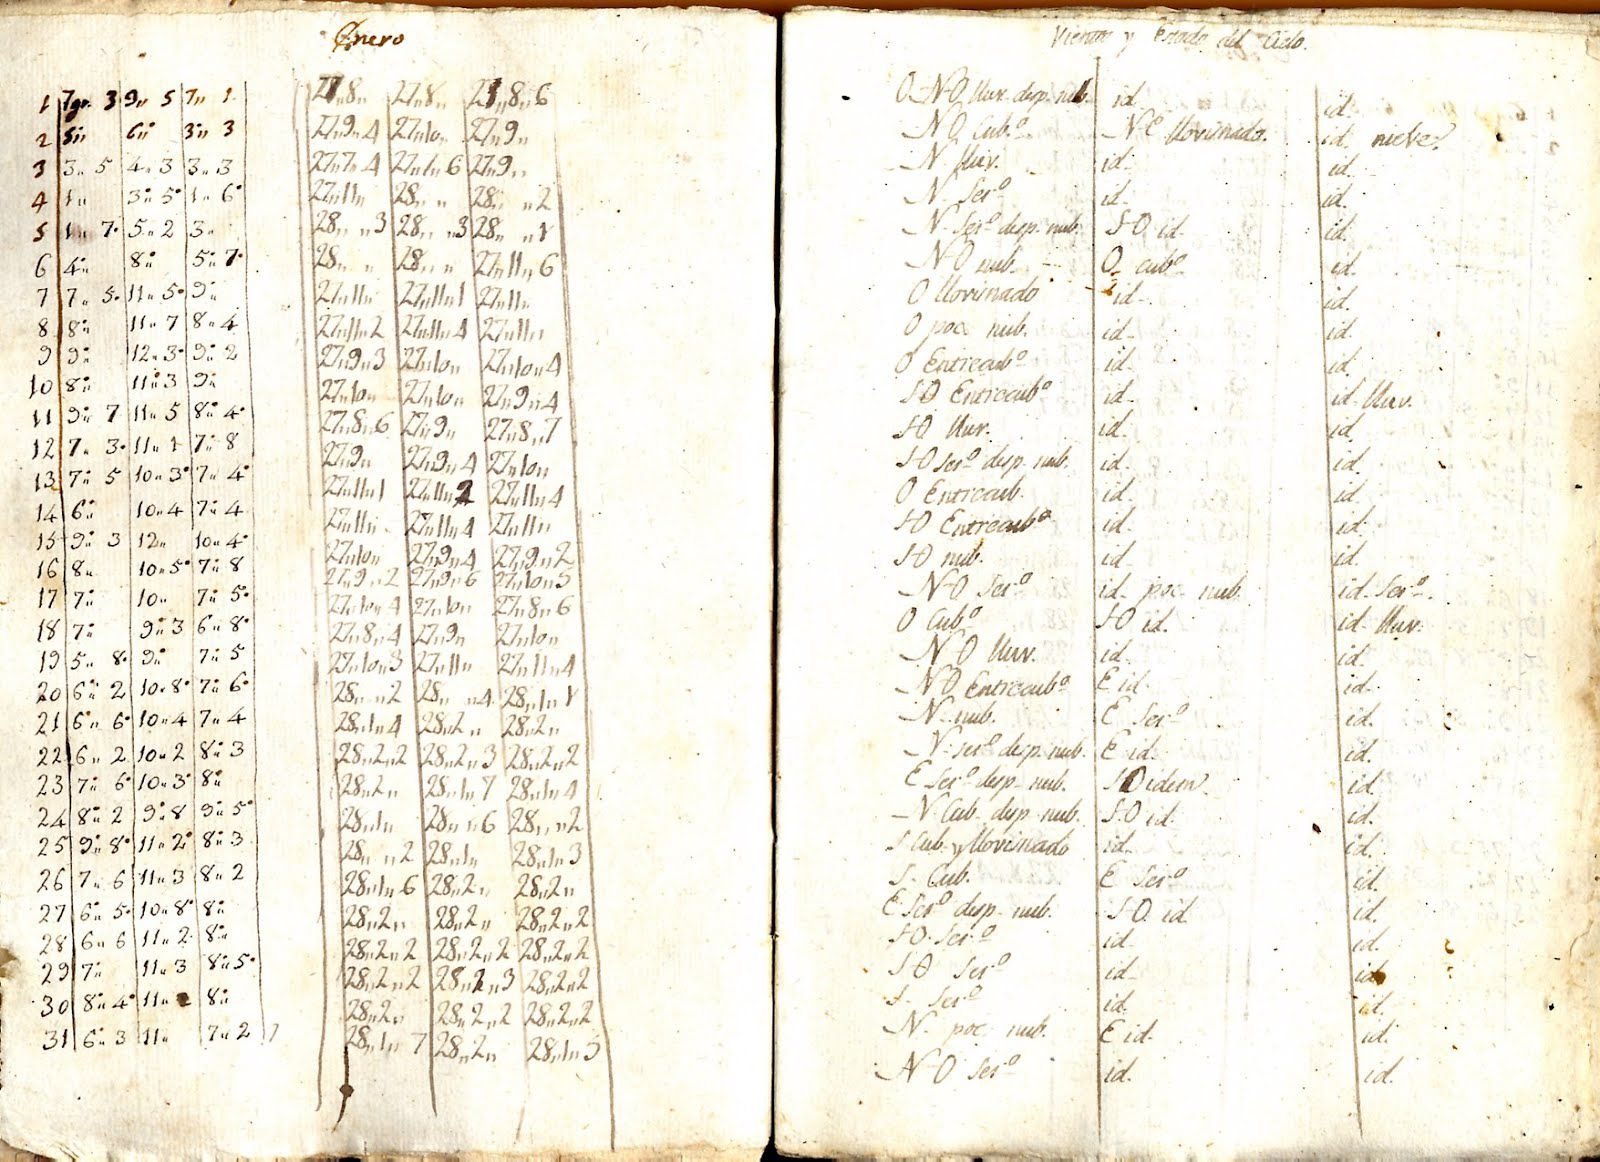 Enero
1 7gr. 3 9,, 5 7,, 1 27,,8,, 27,,8,, 27,,8,,6
2 5,, 6,, 3,, 3 27,,9,,4 27,,10,, 27,,9,,
3 3,, 5 4,, 3 3,, 3 27,,7,,4 27,,7,,6 27,,9,,
4 1,, 3,, 5 1,, 6 27,,11,, 28,, ,, 28,, ,,2
5 1,, 7 5,, 2 3,, 28,, ,,3 28,, ,,3 28,, ,,1
6 4,, 8,, 5,, 7 28,, ,, 28,, ,, 27,,11,,6
7 7,, 5 11,, 5 9,, 27,,11,, 27,,11,,1 27,,11,,
8 8,, 11,, 7 8,, 4 27,,11,,2 27,,11,,4 27,,11,,
9 9,, 12,, 3 9,, 2 27,,9,,3 27,,10,, 27,,10,,4
10 8,, 11,, 3 9,, 27,,10,, 27,,10,, 27,,9,,4
11 9,, 7 11,, 5 8,, 4 27,,8,,6 27,,9,, 27,,8,,7
12 7,, 3 11,, 1 7,, 8 27,,9,, 27,,9,,4 27,,10,,
13 7,, 5 10,, 3 7,, 4 27,,11,,1 27,,11,,2 27,,11,,4
14 6,, 10,, 4 7,, 4 27,,11,, 27,,11,,4 27,,11,,
15 9,, 3 12,, 10,, 4 27,,10,, 27,,9,,4 27,,9,,2
16 8,, 10,, 5 7,, 8 27,,9,,2 27,,9,,6 27,,10,,5
17 7,, 10,, 7,, 5 27,,10,,4 27,,10,, 27,,8,,6
18 7,, 9,, 3 6,, 8 27,,8,,4 27,,9,, 27,,10,,
19 5,, 8 9,, 7,, 5 27,,10,,3 27,,11,, 27,,11,,4
20 6,, 2 10,, 8 7,, 6 28,, ,,2 28,, ,,4 28,,1,,1
21 6,, 6 10,, 4 7,, 4 28,,1,,4 28,,2,, 28,,2,,
22 6,, 2 10,, 2 8,, 3 28,,2,,2 28,,2,,3 28,,2,,2
23 7,, 6 10,, 3 8,, 28,,2,, 28,,1,,7 28,,1,,4
24 8,, 2 9,, 8 9,, 5 28,,1,, 28,, ,,6 28,, ,,2
25 9,, 8 11,, 2 8,, 3 28,, ,,2 28,,1,, 28,,1,,3
26 7,, 6 11,, 3 8,, 2 28,,1,,6 28,,2,, 28,,2,,
27 6,, 5 10,, 8 8,, 28,,2,, 28,,2,, 28,,2,,2
28 6,, 6 11,, 2 8,, 28,,2,,2 28,,2,,2 28,,2,,2
29 7,, 11,, 3 8,, 5 28,,2,,2 28,,2,,3 28,,2,,2
30 8,, 4 11,, 8,, 28,,2,, 28,,2,,2 28,,2,,2
31 6,, 3 11,, 7,, 2 28,,1,,7 28,,2,, 28,,1,,5
Vientos y Estado del Cielo.
O. NO lluv. desp. nub. id. id.
NO. Cubº. NE llovisnado. id. nieve.
N lluv. id. id.
N. Serº id. id.
N. Serº desp. nub. SO. id. id.
NO nub. O. cubº id.
O llovisnado id. id.
O poc. nub. id. id.
O Entrecubº id. id.
SO Entrecubº id. id. lluv.
SO lluv. id. id.
SO serº desp. nub. id. id.
O Entrecub. id. id.
SO Entrecubº id. id.
SO nub. id. id.
NO Serº id. poc. nub. id. Serº.
O Cubº SO id. id. lluv.
NO lluv. id. id.
NO. Entrecubº E id. id.
N. nub. E Serº id.
N. serº desp. nub. E id. id.
E Serº desp. nub. SO idem. id.
N Cub. desp. nub. SO id. id.
S Cub. y llovisnado id. id.
S. Cub. E Serº id.
E Serº desp. nub. SO. id. id.
SO. Serº id. id.
SO Serº id. id.
S. Serº id. id.
N. poc. nub. E id. id.
NO Serº id. id.